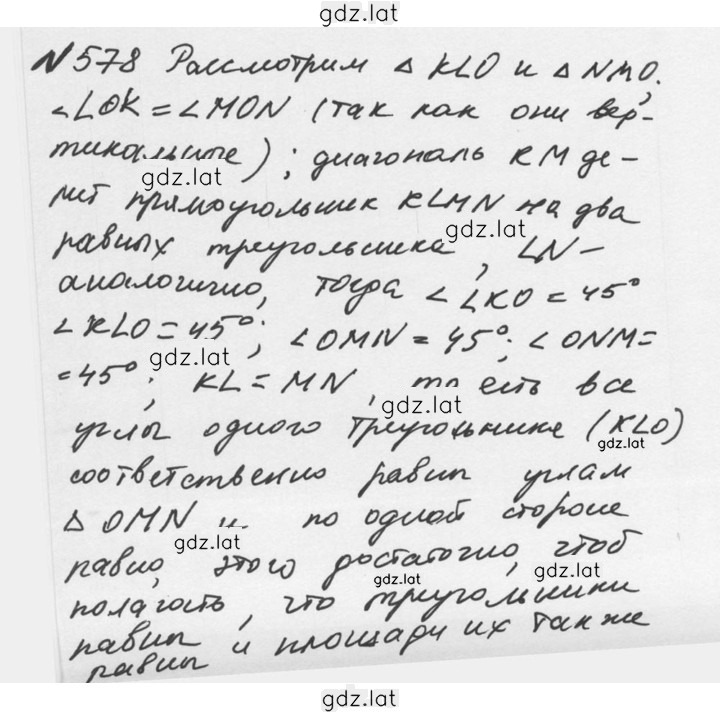 gdz.lat
№578 Рассмотрим △ KLO и △ NMO.
∠LOK = ∠MON (так как они вер-
тикальные); диагональ KM де-
gdz.lat
лит прямоугольник KLMN на два
gdz.lat
равных треугольника, LN-
аналогично, тогда ∠LKO = 45°
∠KLO = 45°; ∠OMN = 45°; ∠ONM=
gdz.lat
=45°; KL = MN, то есть все
gdz.lat
углы одного треугольника (KLO)
gdz.lat
соответственно равны углам
△ OMN и по одной стороне
gdz.lat
равно, этого достаточно, чтоб
gdz.lat
gdz.lat
полагать, что треугольники
равны и площади их также
равны
gdz.lat